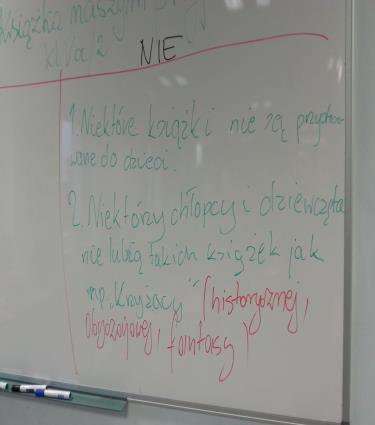 Książka naszym
kl Va/2
NIE
1. Niektóre książki nie są przysto-
wane do dzieci.
2. Niektórzy chłopcy i dziewczęta
nie lubią takich książek jak
np. „Krzyżacy” (historycznej,
obyczajowej, fantasy)